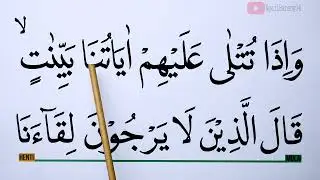 وَاِذَا تُتْلٰى عَلَيْهِمْ اٰيَاتُنَا بَيِّنٰتٍۙ
قَالَ الَّذِيْنَ لَا يَرْجُوْنَ لِقَآءَنَا
HENTI MULA